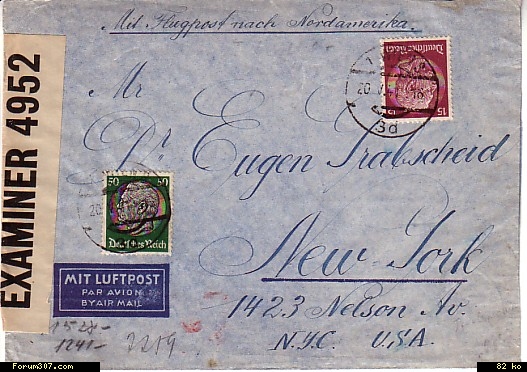 Mit Flugpost nach Nordamerika.
EXAMINER 4952
Deutsches Reich
15
Mr
Dr Eugen Trabscheid
50 50
Deutsches Reich
New-York
MIT LUFTPOST
PAR AVION
BY AIR MAIL
1423 Nelson Av.
N.Y.C. U.S.A.
1241-
2219
Forum307.com
82 ko